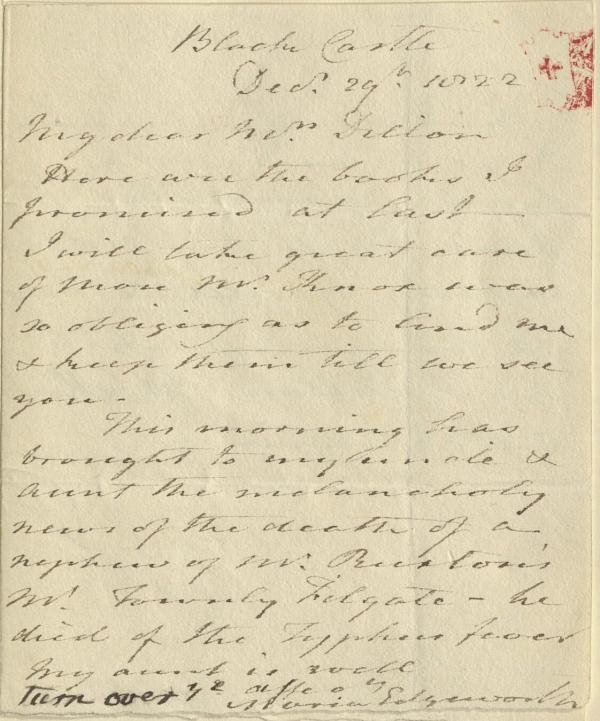 Black Castle
Decr. 29th. 1822
My dear Mrs Dillon
Here are the books I
promised at last —
I will take great care
of those Mr. Knox was
so obliging as to lend me
& keep them till we see
you —
This morning has
brought to my uncle &
aunt the melancholy
news of the death of a
nephew of Mr. Ruxton's
Mr. Townly Filgate — he
died of the Typhus fever
My aunt is well
Turn over yr affecly
Maria Edgeworth